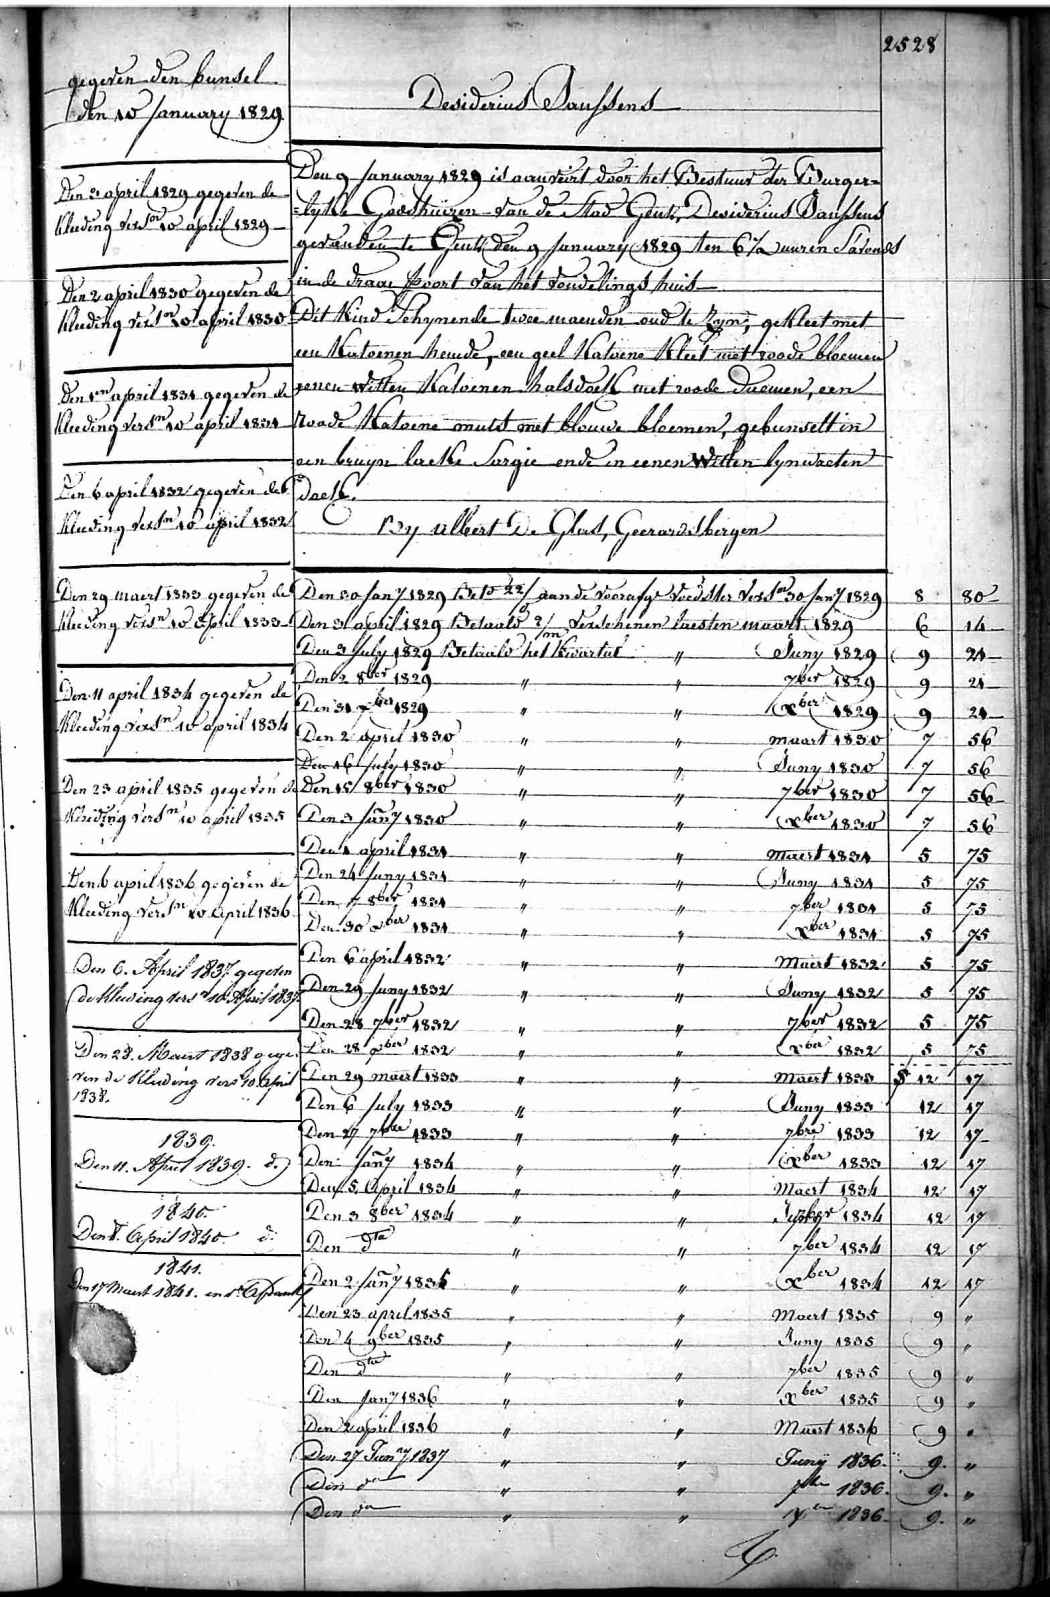 2528
Desiderius Saussens
Den 9 January 1829 is aanveirt door het Bestuur der Burger=
=lyke Godshuizen van de Stad Gent, Desiderius Saussens
gevonden te Gent den 9 January 1829 ten 6 1/2 uuren S'avonds
in de draaj poort van het vondelings huis
Dit Kind Schynende twee maenden oud te Zyn, gekleet met
een Katoenen hemde, een geel Katoene Kleet met roode bloemen
eenen witten Katoenen halsdoek met roode, een
roode Katoene muts met blouwe bloemen, gebunselt in
een bruyn laeke Sargie ende in eenen witten lynwaeten
doek.
By De Glas, Geerardsbergen
gegeven den bunsel
den 10 January 1829
Den 3 april 1829 gegeven de
kleeding 10 april 1829
Den 2 april 1830 gegeven de
kleeding versn 10 april 1830
Den 1n april 1831 gegeven de
kleeding versn 10 april 1831
Den 6 april 1832 gegeven de
kleeding versn 10 april 1832
Den 29 maert 1833 gegeven de
kleeding versn 10 april 1833
Den 11 april 1834 gegeven de
kleeding versn 10 april 1834
Den 23 april 1835 gegeven de
kleeding versn 10 april 1835
Den 6 april 1836 gegeven de
kleeding versn 10 april 1836
Den 6. April 1837 gegeven
de kleeding versn 10 April 1837
Den 28. Maert 1838 gege-
ven de kleeding versn 10 april
1838.
1839.
Den 11. April 1839. do
1840.
Den 8. April 1840. do
1841.
Den 17 Maert 1841.
Den 30 Jany 1829 aan de voedster versn 30 Jany 1829 8 80
Den 3 april 1829 Betaald 2/m verschenen laesten maart 1829 6 14
Den 3 July 1829 Betaald het Kwartal " Juny 1829 9 21
Den 2 8ber 1829 " " 7ber 1829 9 21
Den 31 xber 1829 " " xber 1829 9 21
Den 2 april 1830 " " maart 1830 7 56
Den 16 July 1830 " " Juny 1830 7 56
Den 15 8ber 1830 " " 7ber 1830 7 56
Den 3 Jany 1830 " " xber 1830 7 56
Den 1 april 1831 " " maert 1831 5 75
Den 24 Juny 1831 " " Juny 1831 5 75
Den 7 8ber 1831 " " 7ber 1831 5 75
Den 30 xber 1831 " " xber 1831 5 75
Den 6 april 1832 " " Maert 1832 5 75
Den 29 Juny 1832 " " Juny 1832 5 75
Den 28 7ber 1832 " " 7ber 1832 5 75
Den 28 xber 1832 " " xber 1832 5 75
Den 29 maert 1833 " " Maert 1833 12 17
Den 6 July 1833 " " Juny 1833 12 17
Den 27 7bre 1833 " " 7bre 1833 12 17
Den Jany 1834 " " xber 1833 12 17
Den 5 April 1834 " " Maert 1834 12 17
Den 3 8ber 1834 " " 1834 12 17
Den dto " " 7ber 1834 12 17
Den 2 Jany 1835 " " xber 1834 12 17
Den 23 april 1835 " " Maert 1835 9 "
Den 4 9ber 1835 " " Juny 1835 9 "
Den dto " " 7ber 1835 9 "
Den Jany 1836 " " xber 1835 9 "
Den 2 april 1836 " " Maert 1836 9 "
Den 27 Jany 1837 " " Juny 1836. 9. "
Den do " " 7bre 1836. 9. "
Den do " " Xer 1836. 9. "